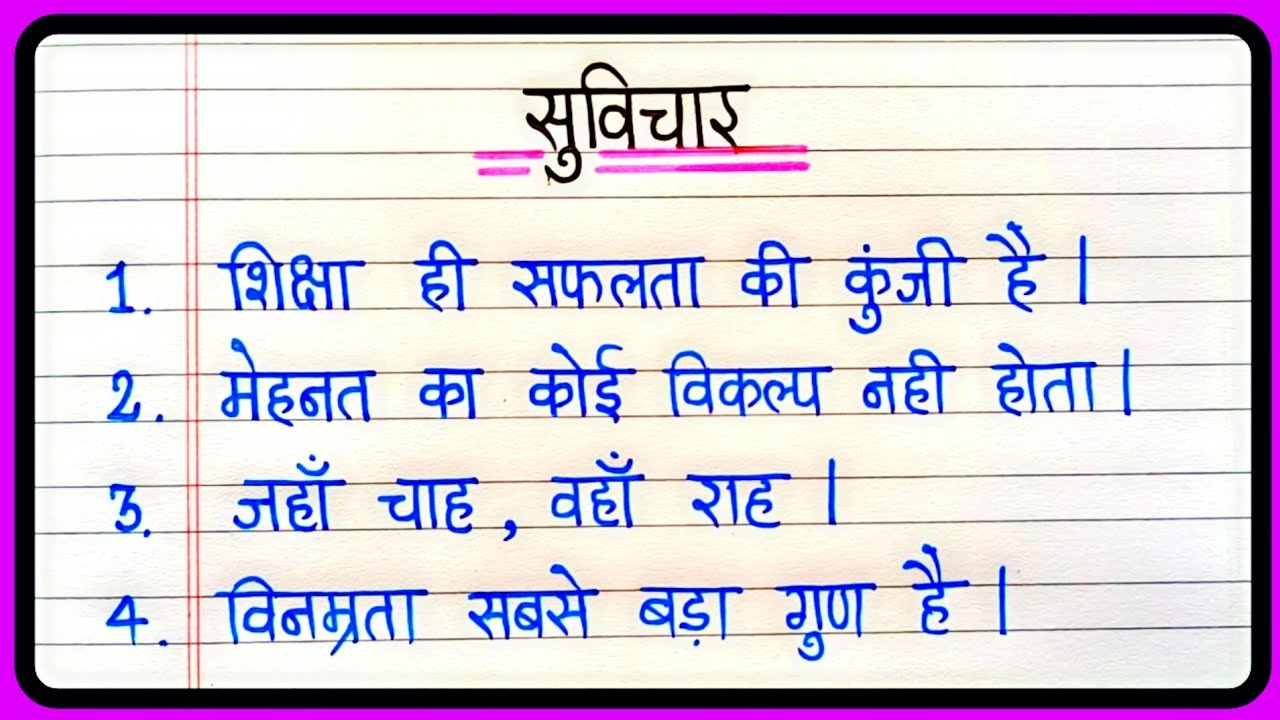 सुविचार
1. शिक्षा ही सफलता की कुंजी है ।
2. मेहनत का कोई विकल्प नही होता ।
3. जहाँ चाह , वहाँ राह ।
4. विनम्रता सबसे बड़ा गुण है ।